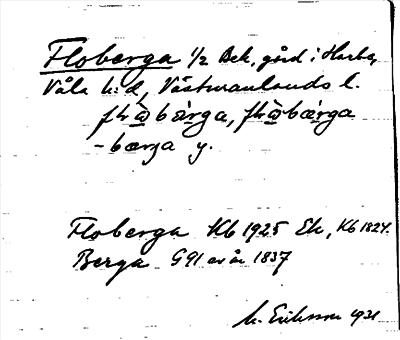 Floberga 1/2 Bek, gård i Harbo,
Våla h:d, Västmanlands l.
bærga,
-bærja y.
Floberga Kb 1925 Ek, Kb 1824.
Berga G91 av år 1837
M. Eriksson 1931